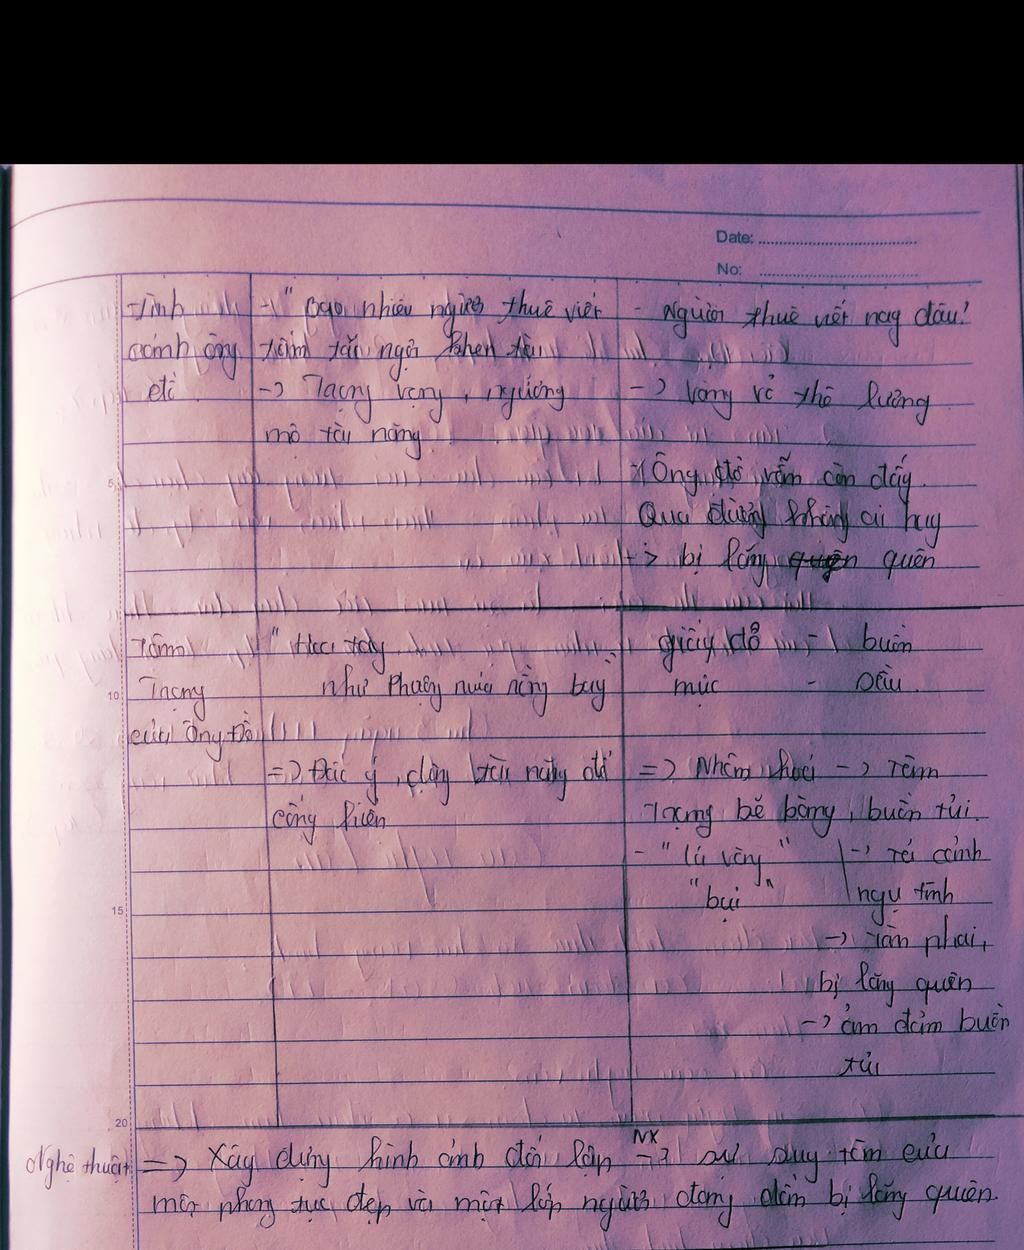 Date:
No:
Tình - " Bao nhiêu người thuê viết - Người thuê viết nay đâu?
cảnh ông tấm tắc ngợi khen tài
đồ -> Trọng vọng, ngưỡng -> Vắng vẻ thê lương
mộ tài năng
5 Ông đồ vẫn còn đấy
Qua đường không ai hay
-> bị lãng quên
Tâm " Hoa tay giấy đỏ - buồn
10 Trạng như phượng múa rồng bay mực - sầu
của Ông Đồ
=> Đắc ý, dùng tài năng để => Nhân hoá -> Tâm
cống hiến Trạng bẽ bàng, buồn tủi.
- " lá vàng " -> Tả cảnh
15 "bụi" ngụ tình
-> Tàn phai,
bị lãng quên
-> ảm đạm buồn
tủi
20 NX
Nghệ thuật => Xây dựng hình ảnh đối lập -> sự suy tàn của
một phong tục đẹp và một lớp người đang dần bị lãng quên.